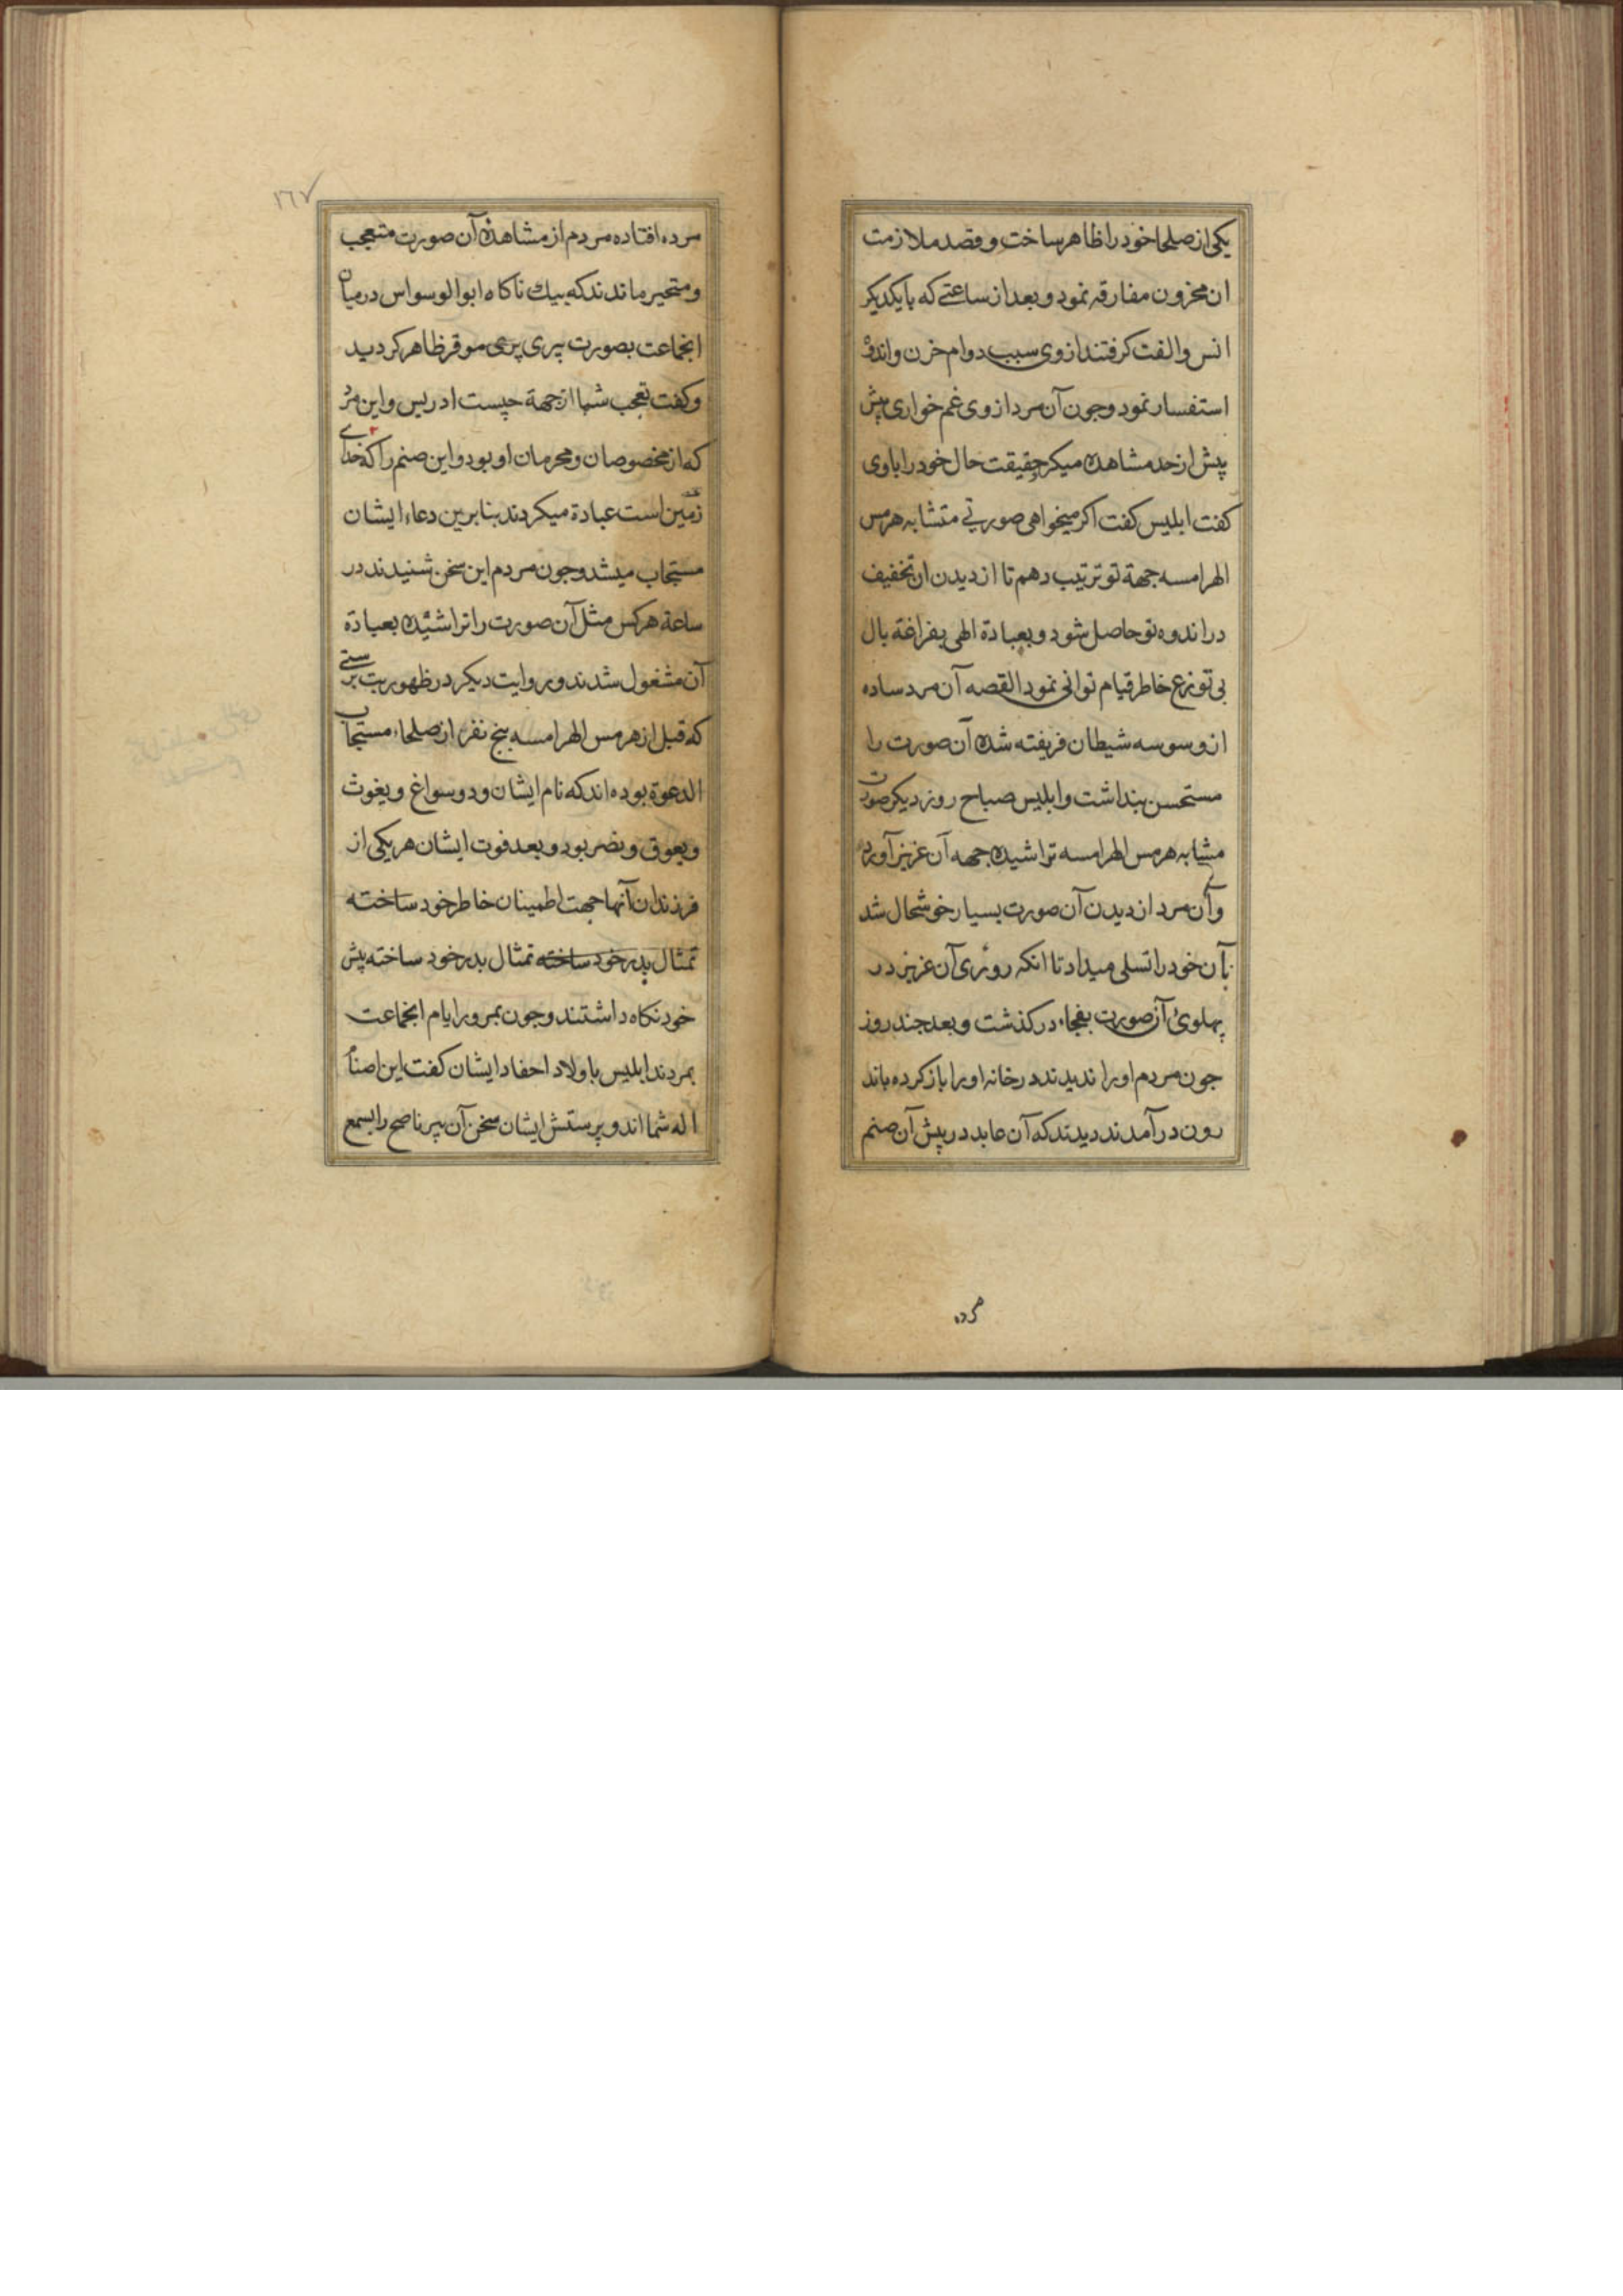 یکی از صلحا خود را ظاهر ساخت و قصد ملازمت
ان محزون مفارقه نمود و بعد از ساعتی که با یکدیکر
انس و الفت کرفتند از وی سبب دوام حزن و اندوه
استفسار نمود و جون آن مرد از وی غم خواری پیش
پیش از حد مشاهده میکرد حقیقت حال خود را با وی
کفت ابلیس کفت اکر میخواهی صورتی متشابه هرمس
الهرامسه جهة تو ترتیب دهم تا از دیدن ان تخفیف
در اندوه تو حاصل شود و بعبادة الهی بفراغة بال
بی توزع خاطر قیام توانی نمود القصه آن مرد ساده
از وسوسه شیطان فریفته شده آن صورت را
مستحسن بنداشت و ابلیس صباح روز دیکر صورت
مشابه هرمس الهرامسه تراشیده جهه آن عزیز آورد
و آن مرد از دیدن آن صورت بسیار خوشحال شد
بآن خود را تسلی میداد تا انکه روزی آن عزیز در
پهلوئ آن صورت بفجاء درکذشت و بعد جند روز
جون مردم او را ندیدند در خانه او را باز کرده باند
رون درآمدند دیدند که آن عابد در پیش آن صنم
مرده
۱۶۷
مرده افتاده مردم از مشاهده آن صورت متعجب
و متحیر ماندند که بیك ناکاه ابوالوسواس درمیان
انجماعت بصورت پیری پری موقر ظاهر کردید
و کفت تعجب شما از جهة چیست ادریس و این مرد
که از مخصوصان و محرمان او بود و این صنم را که خدای
زمین است عبادة میکردند بنابرین دعاء ایشان
مستجاب میشد و جون مردم این سخن شنیدند در
ساعة هرکس مثل آن صورت را تراشیده بعبادة
آن مشغول شدند و روایت دیکر در ظهور بت برستی
که قبل از هرمس الهرامسه بنج نفر از صلحاء مستجاب
الدعوة بوده اند که نام ایشان ود و سواغ و یغوث
و یعوق و نضر بود و بعد فوت ایشان هر یکی از
فرزندان آنها جهت اطمینان خاطر خود ساخته
تمثال بدر خود ساخته تمثال بدر خود ساخته پیش
خود نکاه داشتند و جون بمرور ایام انجماعت
بمردند ابلیس با ولاد احفاد ایشان کفت این اصنام
اله شما اند و پرستش ایشان سخن آن پیر ناصح را بسمع